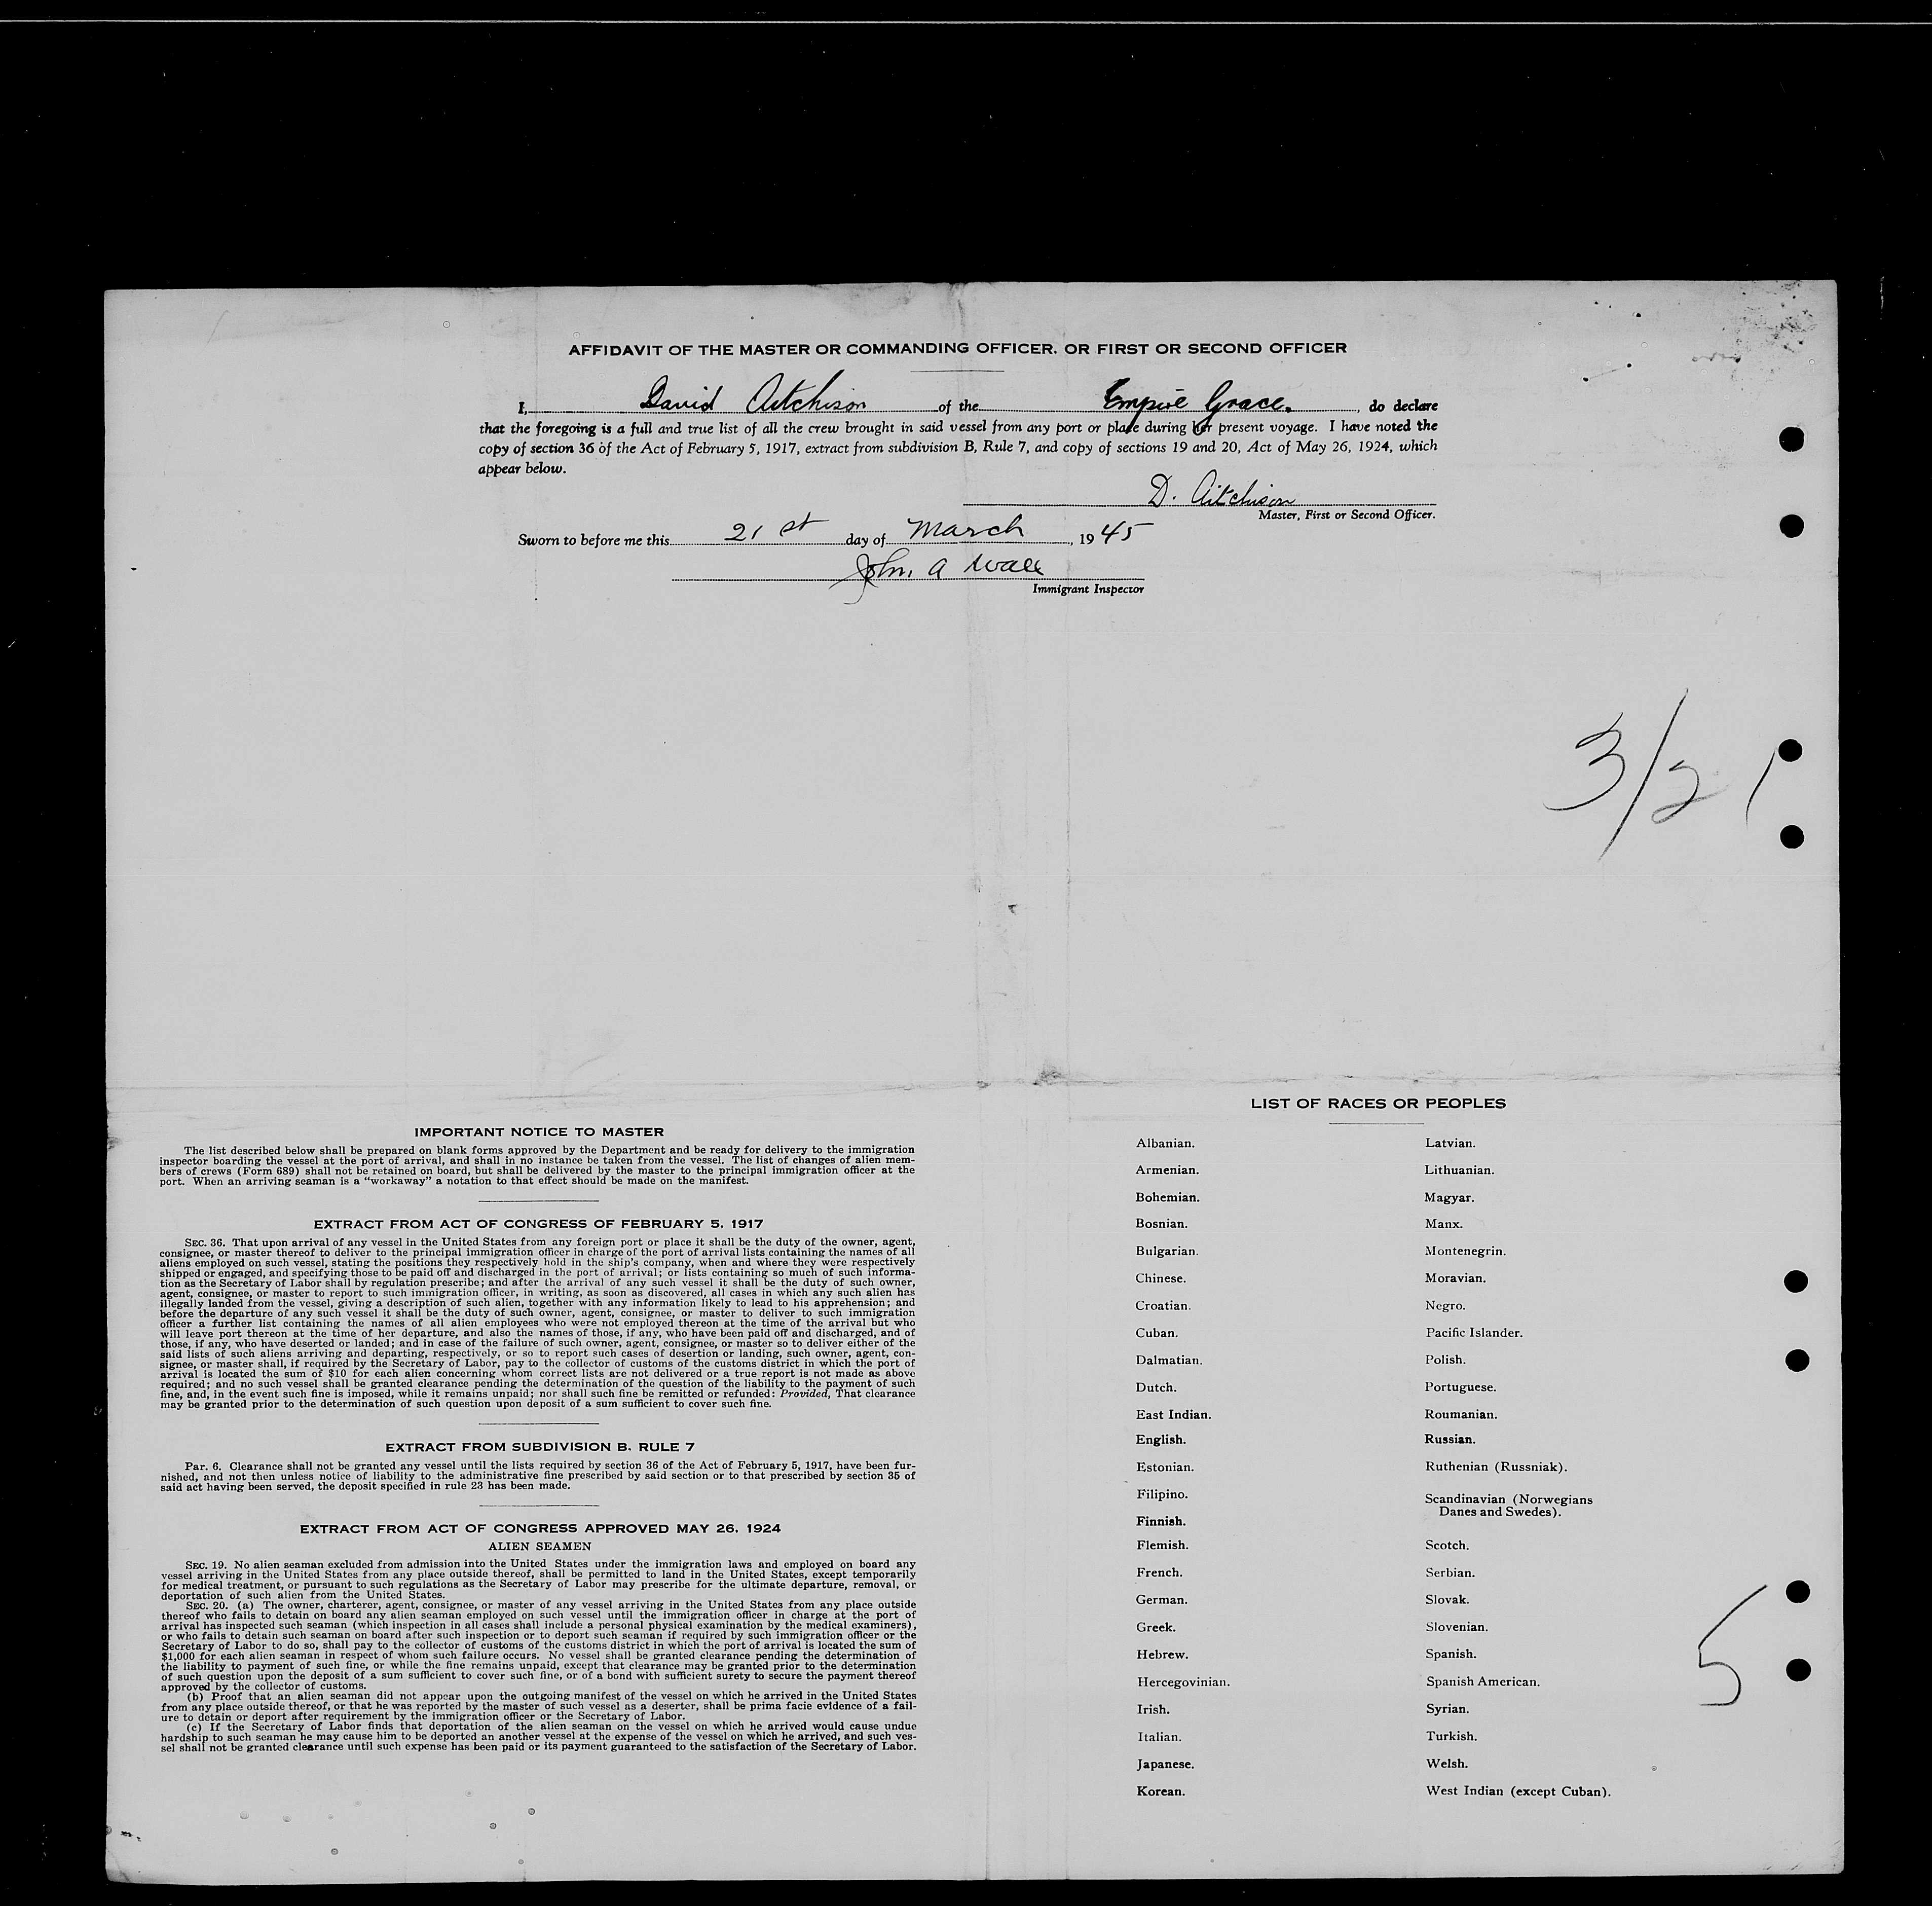 AFFIDAVIT OF THE MASTER OR COMMANDING OFFICER, OR FIRST OR SECOND OFFICER
I, David Aitchison of the Empire Grace. , do declare
that the foregoing is a full and true list of all the crew brought in said vessel from any port or place during her present voyage. I have noted the
copy of section 36 of the Act of February 5, 1917, extract from subdivision B, Rule 7, and copy of sections 19 and 20, Act of May 26, 1924, which
appear below.
D. Aitchison
Master, First or Second Officer.
Sworn to before me this 21 st day of March , 19 45
John A Wall
Immigrant Inspector
3/21
IMPORTANT NOTICE TO MASTER
The list described below shall be prepared on blank forms approved by the Department and be ready for delivery to the immigration
inspector boarding the vessel at the port of arrival, and shall in no instance be taken from the vessel. The list of changes of alien mem-
bers of crews (Form 689) shall not be retained on board, but shall be delivered by the master to the principal immigration officer at the
port. When an arriving seaman is a "workaway" a notation to that effect should be made on the manifest.
EXTRACT FROM ACT OF CONGRESS OF FEBRUARY 5, 1917
SEC. 36. That upon arrival of any vessel in the United States from any foreign port or place it shall be the duty of the owner, agent,
consignee, or master thereof to deliver to the principal immigration officer in charge of the port of arrival lists containing the names of all
aliens employed on such vessel, stating the positions they respectively hold in the ship's company, when and where they were respectively
shipped or engaged, and specifying those to be paid off and discharged in the port of arrival; or lists containing so much of such informa-
tion as the Secretary of Labor shall by regulation prescribe; and after the arrival of any such vessel it shall be the duty of such owner,
agent, consignee, or master to report to such immigration officer, in writing, as soon as discovered, all cases in which any such alien has
illegally landed from the vessel, giving a description of such alien, together with any information likely to lead to his apprehension; and
before the departure of any such vessel it shall be the duty of such owner, agent, consignee, or master to deliver to such immigration
officer a further list containing the names of all alien employees who were not employed thereon at the time of the arrival but who
will leave port thereon at the time of her departure, and also the names of those, if any, who have been paid off and discharged, and of
those, if any, who have deserted or landed; and in case of the failure of such owner, agent, consignee, or master so to deliver either of the
said lists of such aliens arriving and departing, respectively, or so to report such cases of desertion or landing, such owner, agent, con-
signee, or master shall, if required by the Secretary of Labor, pay to the collector of customs of the customs district in which the port of
arrival is located the sum of $10 for each alien concerning whom correct lists are not delivered or a true report is not made as above
required; and no such vessel shall be granted clearance pending the determination of the question of the liability to the payment of such
fine, and, in the event such fine is imposed, while it remains unpaid; nor shall such fine be remitted or refunded: Provided, That clearance
may be granted prior to the determination of such question upon deposit of a sum sufficient to cover such fine.
EXTRACT FROM SUBDIVISION B, RULE 7
Par. 6. Clearance shall not be granted any vessel until the lists required by section 36 of the Act of February 5, 1917, have been fur-
nished, and not then unless notice of liability to the administrative fine prescribed by said section or to that prescribed by section 35 of
said act having been served, the deposit specified in rule 23 has been made.
EXTRACT FROM ACT OF CONGRESS APPROVED MAY 26, 1924
ALIEN SEAMEN
SEC. 19. No alien seaman excluded from admission into the United States under the immigration laws and employed on board any
vessel arriving in the United States from any place outside thereof, shall be permitted to land in the United States, except temporarily
for medical treatment, or pursuant to such regulations as the Secretary of Labor may prescribe for the ultimate departure, removal, or
deportation of such alien from the United States.
SEC. 20. (a) The owner, charterer, agent, consignee, or master of any vessel arriving in the United States from any place outside
thereof who fails to detain on board any alien seaman employed on such vessel until the immigration officer in charge at the port of
arrival has inspected such seaman (which inspection in all cases shall include a personal physical examination by the medical examiners),
or who fails to detain such seaman on board after such inspection or to deport such seaman if required by such immigration officer or the
Secretary of Labor to do so, shall pay to the collector of customs of the customs district in which the port of arrival is located the sum of
$1,000 for each alien seaman in respect of whom such failure occurs. No vessel shall be granted clearance pending the determination of
the liability to payment of such fine, or while the fine remains unpaid, except that clearance may be granted prior to the determination
of such question upon the deposit of a sum sufficient to cover such fine, or of a bond with sufficient surety to secure the payment thereof
approved by the collector of customs.
(b) Proof that an alien seaman did not appear upon the outgoing manifest of the vessel on which he arrived in the United States
from any place outside thereof, or that he was reported by the master of such vessel as a deserter, shall be prima facie evidence of a fail-
ure to detain or deport after requirement by the immigration officer or the Secretary of Labor.
(c) If the Secretary of Labor finds that deportation of the alien seaman on the vessel on which he arrived would cause undue
hardship to such seaman he may cause him to be deported an another vessel at the expense of the vessel on which he arrived, and such ves-
sel shall not be granted clearance until such expense has been paid or its payment guaranteed to the satisfaction of the Secretary of Labor.
LIST OF RACES OR PEOPLES
Albanian.
Armenian.
Bohemian.
Bosnian.
Bulgarian.
Chinese.
Croatian.
Cuban.
Dalmatian.
Dutch.
East Indian.
English.
Estonian.
Filipino.
Finnish.
Flemish.
French.
German.
Greek.
Hebrew.
Hercegovinian.
Irish.
Italian.
Japanese.
Korean.
Latvian.
Lithuanian.
Magyar.
Manx.
Montenegrin.
Moravian.
Negro.
Pacific Islander.
Polish.
Portuguese.
Roumanian.
Russian.
Ruthenian (Russniak).
Scandinavian (Norwegians
Danes and Swedes).
Scotch.
Serbian.
Slovak.
Slovenian.
Spanish.
Spanish American.
Syrian.
Turkish.
Welsh.
West Indian (except Cuban).
5